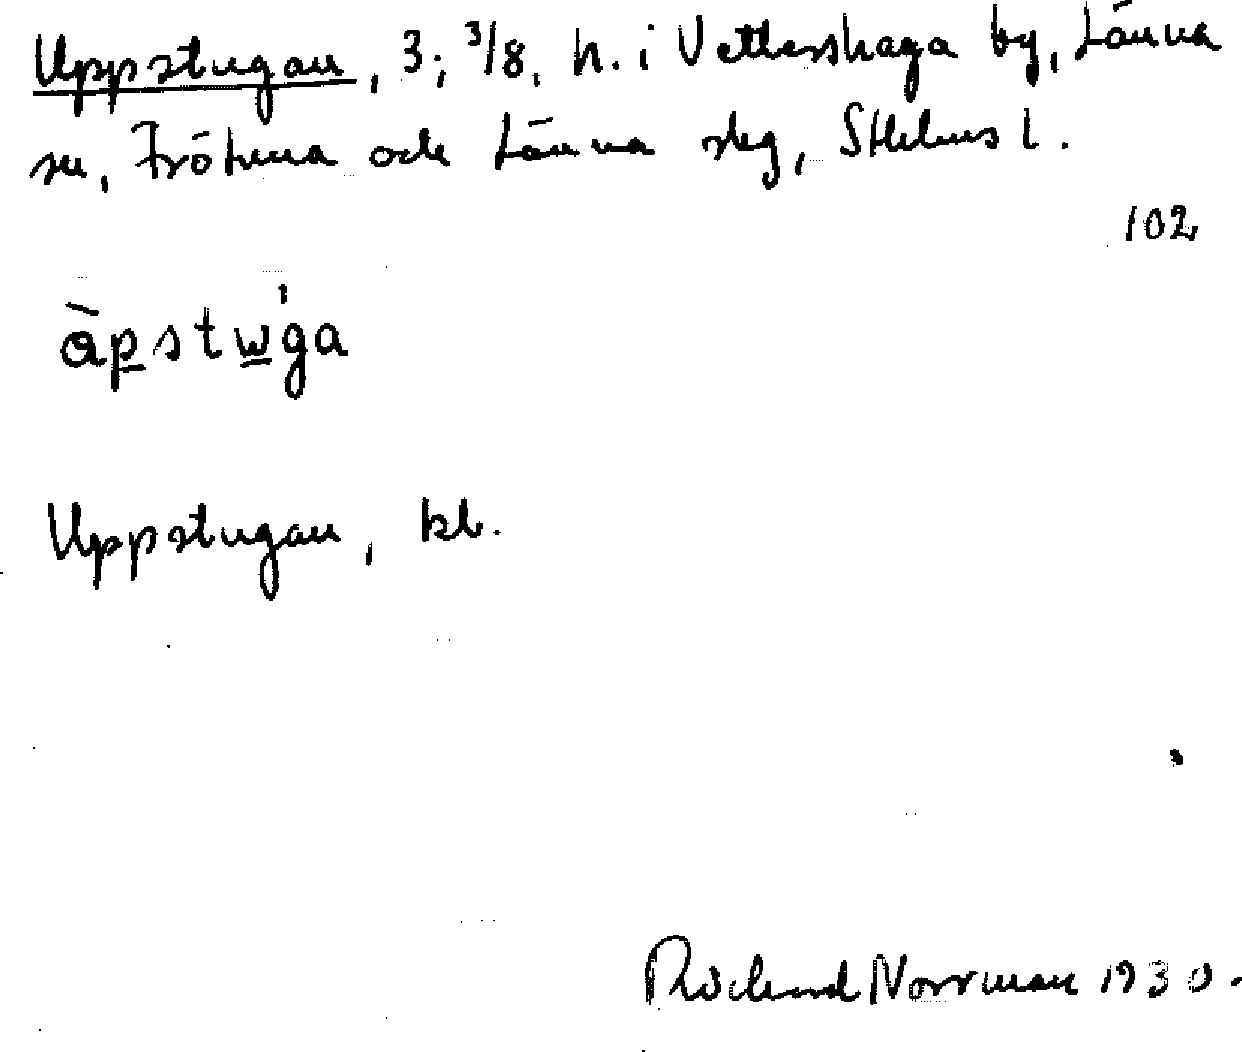 Uppstugan, 3; 3/8, h. i Vettershaga by, Länna
sn, Frötuna och Länna skg, Sthlms l.
102
àpstw̲'ga
Uppstugan, kb.
Richard Norrman 1930.